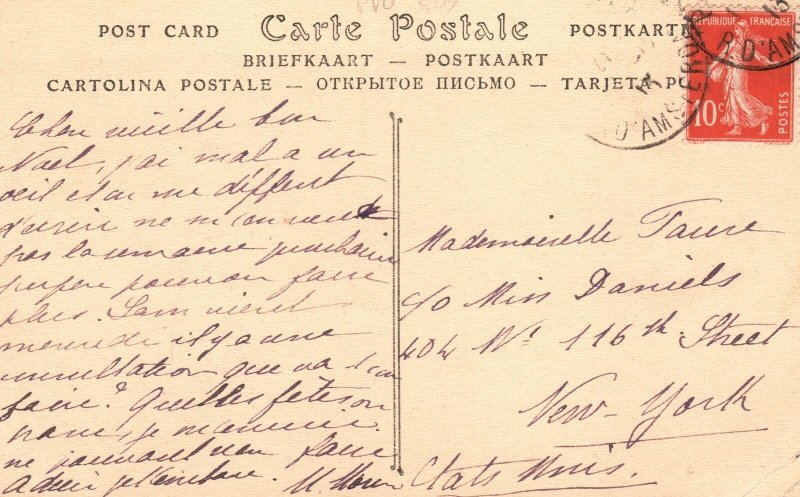 POST CARD Carte Postale POSTKARTE
BRIEFKAART — POSTKAART
CARTOLINA POSTALE — ОТКРЫТОЕ ПИСЬМО — TARJETA P
RÉPUBLIQUE FRANÇAISE
10c
POSTES
R. D'AMSTERDAM
D'AMSTERDAM
vieille
Noel, j'ai mal a un
oeil et on me défent
d'ecrire ne m'en veut
pas la semaine prochaine
j'espere pouvoir faire
plus. Sam vient
mercredi il y a une
consultation que va t'on
faire? Quelles fetes on
nous, je m'ennuie
ne pouvant rien faire
adieu je t'embrasse. M.
Mademoiselle Faure
c/o Miss Daniels
404 W. 116th Street
New-York
Etats Unis.